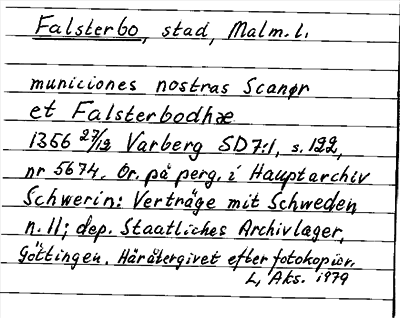 Falsterbo, stad, Malm. l.
municiones nostras Scanør
et Falsterbodhæ
1366 27/12 Varberg SD 7:1, s. 122,
nr 5674. Or. på perg. i Hauptarchiv
Schwerin: Verträge mit Schweden
n. 11; dep. Staatliches Archivlager,
Göttingen. Häråtergivet efter fotokopior.
L, Aks. 1979